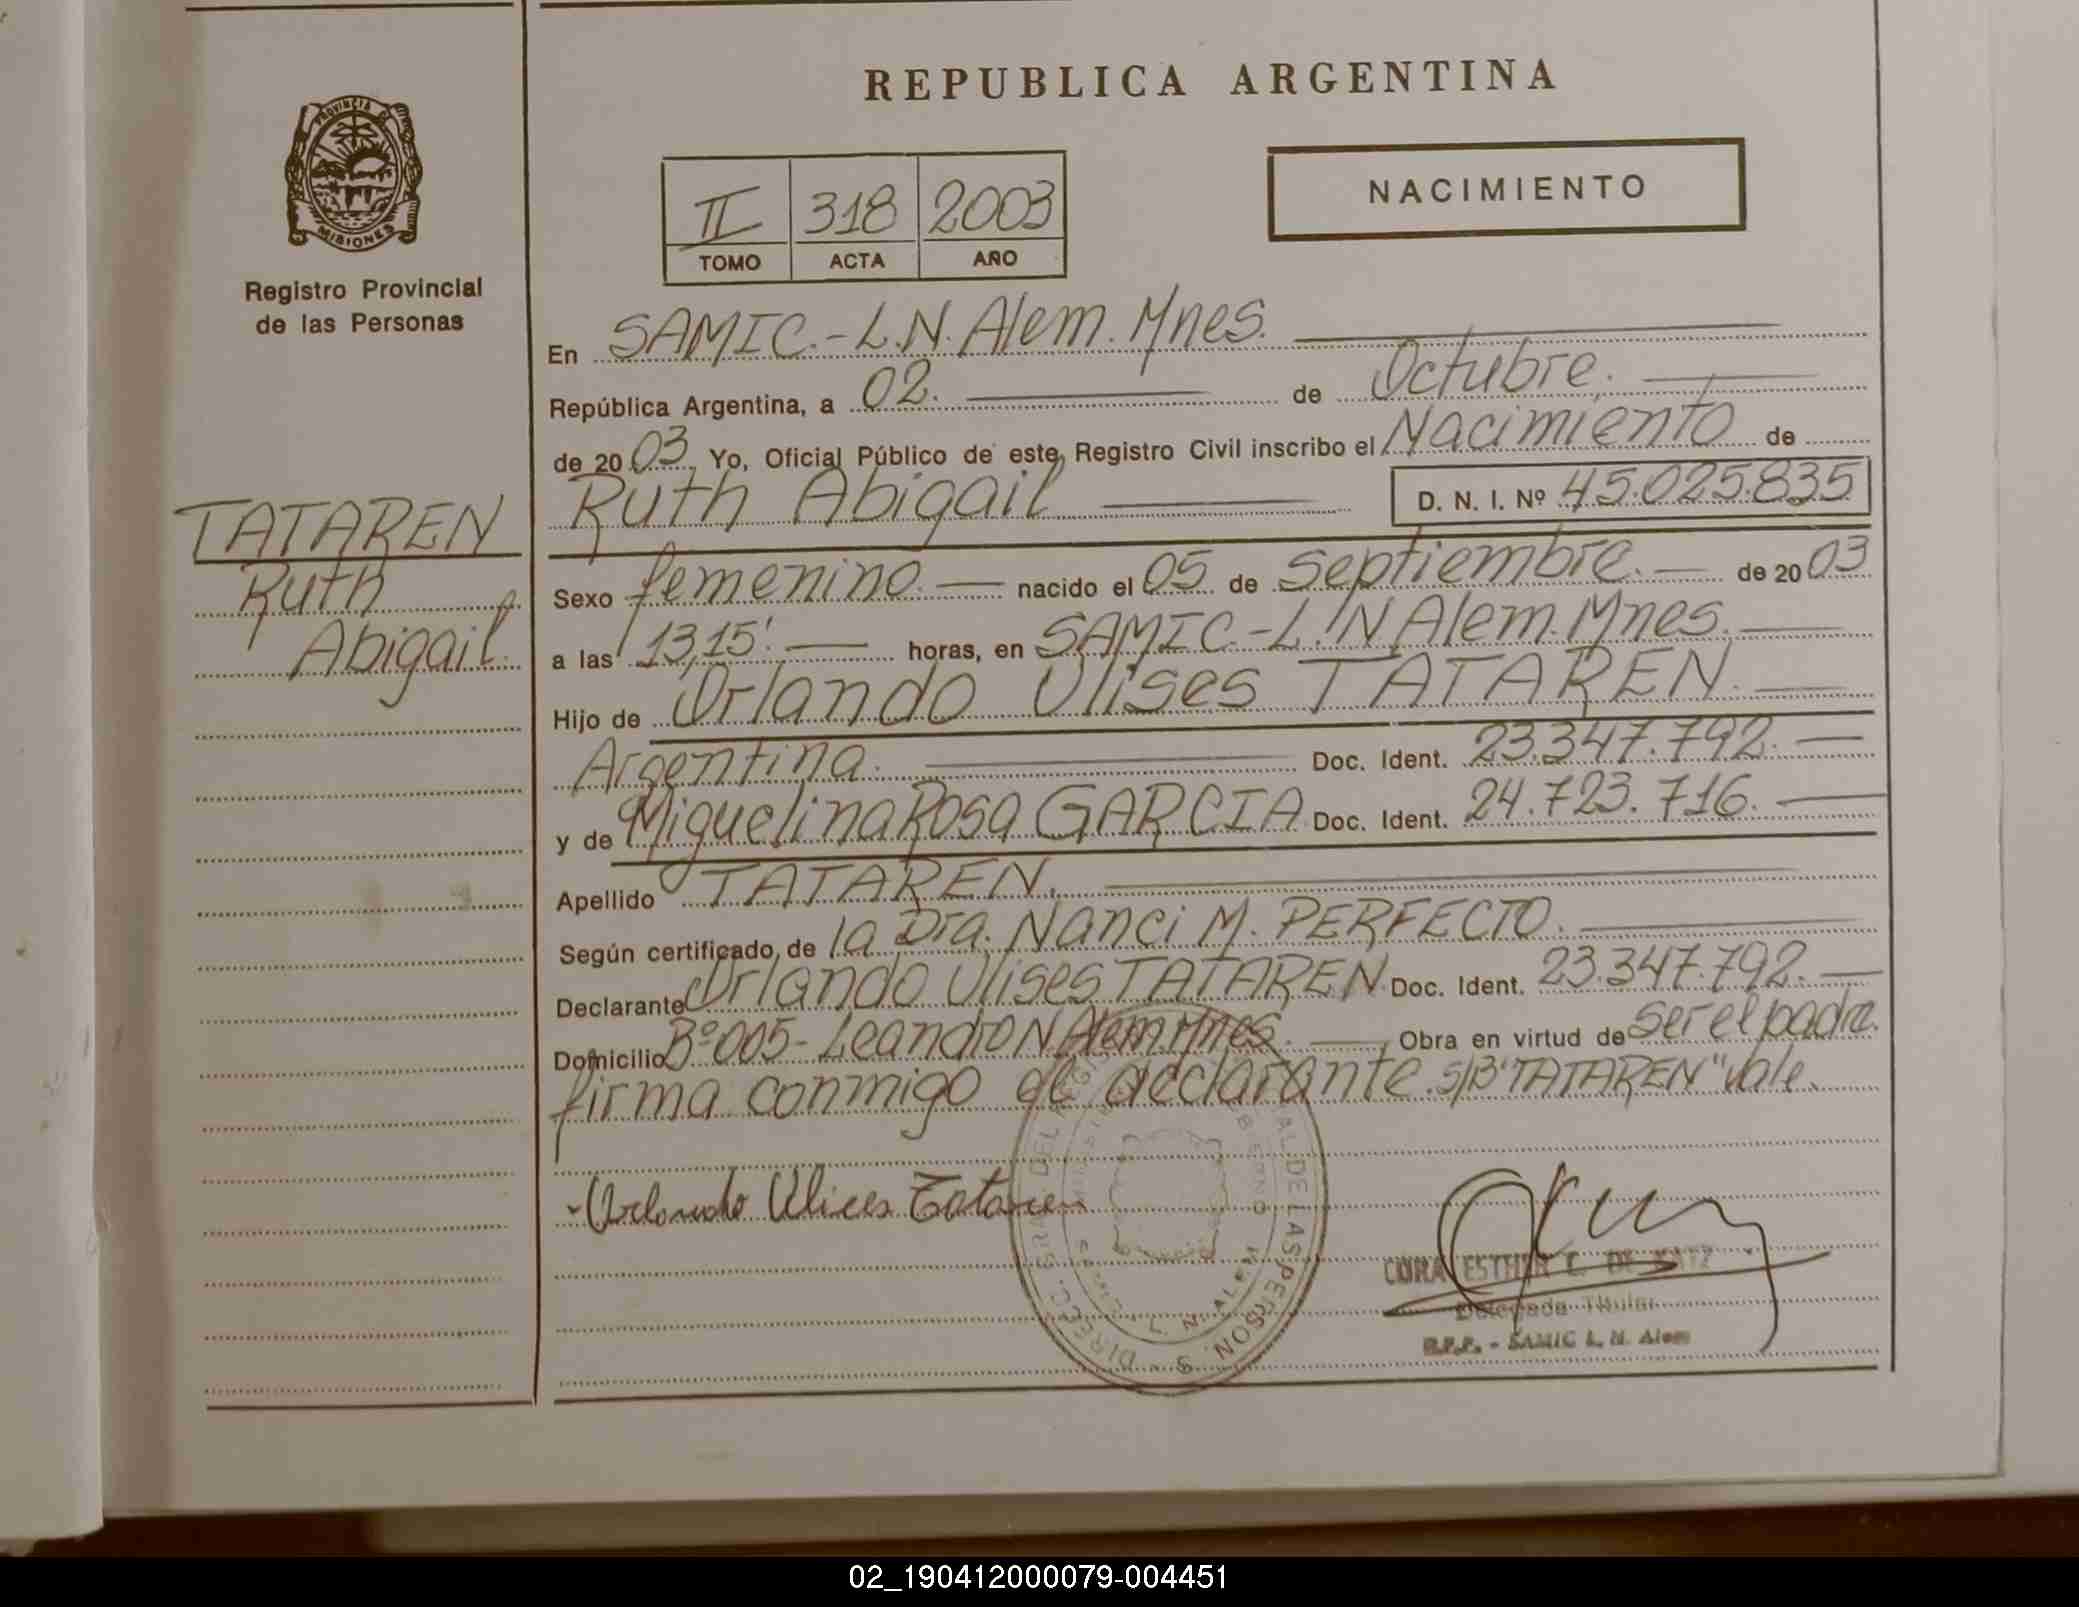 REPUBLICA ARGENTINA
PROVINCIA DE
MISIONES
Registro Provincial
de las Personas
II 318 2003
TOMO ACTA AÑO
NACIMIENTO
TATAREN
Ruth
Abigail.
En SAMIC.-L.N. Alem. Mnes.
República Argentina, a 02. de Octubre.
de 2003, Yo, Oficial Público de este Registro Civil inscribo el Nacimiento de
Ruth Abigail D. N. I. Nº 45.025.835
Sexo femenino. nacido el 05 de Septiembre. de 2003
a las 13,15'. horas, en SAMIC.-L.N Alem. Mnes.
Hijo de Orlando Ulises TATAREN.
Argentina. Doc. Ident. 23.347.792.
y de Miguelina Rosa GARCIA Doc. Ident. 24.723.716.
Apellido TATAREN.
Según certificado de la Dra. Nanci M. PERFECTO.
Declarante Orlando Ulises TATAREN. Doc. Ident. 23.347.792.
Domicilio Bº 005- Leandro N. Alem Mnes. Obra en virtud de ser el padre.
firma conmigo el declarante. S/B "TATAREN" vale.
Orlando Ulices Tataren
DIREC. GRAL DEL REGIS AL DE LAS PERSON. S
L. N. ALEM
CORA ESTHER C. DE KATZ
Delegada Titular
R.P.P. - SAMIC L. N. Alem
02_190412000079-004451